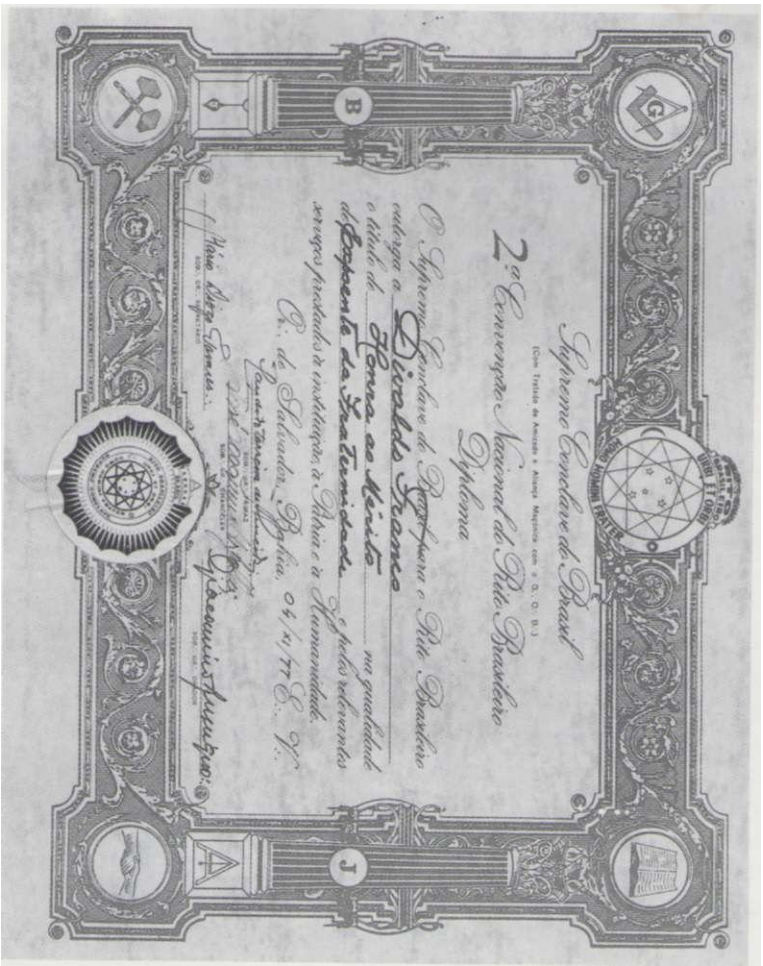 G
B
J
HOMO HOMINI FRATER
Supremo Conclave do Brasil
(Com Tratado de Amizade e Aliança Maçônica com o G. O. B.)
2ª Convenção Nacional do Rito Brasileiro
Diploma
O Supremo Conclave do Brasil para o Rito Brasileiro
outorga a Divaldo Franco
o título de Honra ao Mérito na qualidade
de Expoente da Fraternidade e pelos relevantes
serviços prestados à instituição, à Pátria e à Humanidade.
Or∴ de Salvador, Bahia, 04/XI/77 E∴ V∴